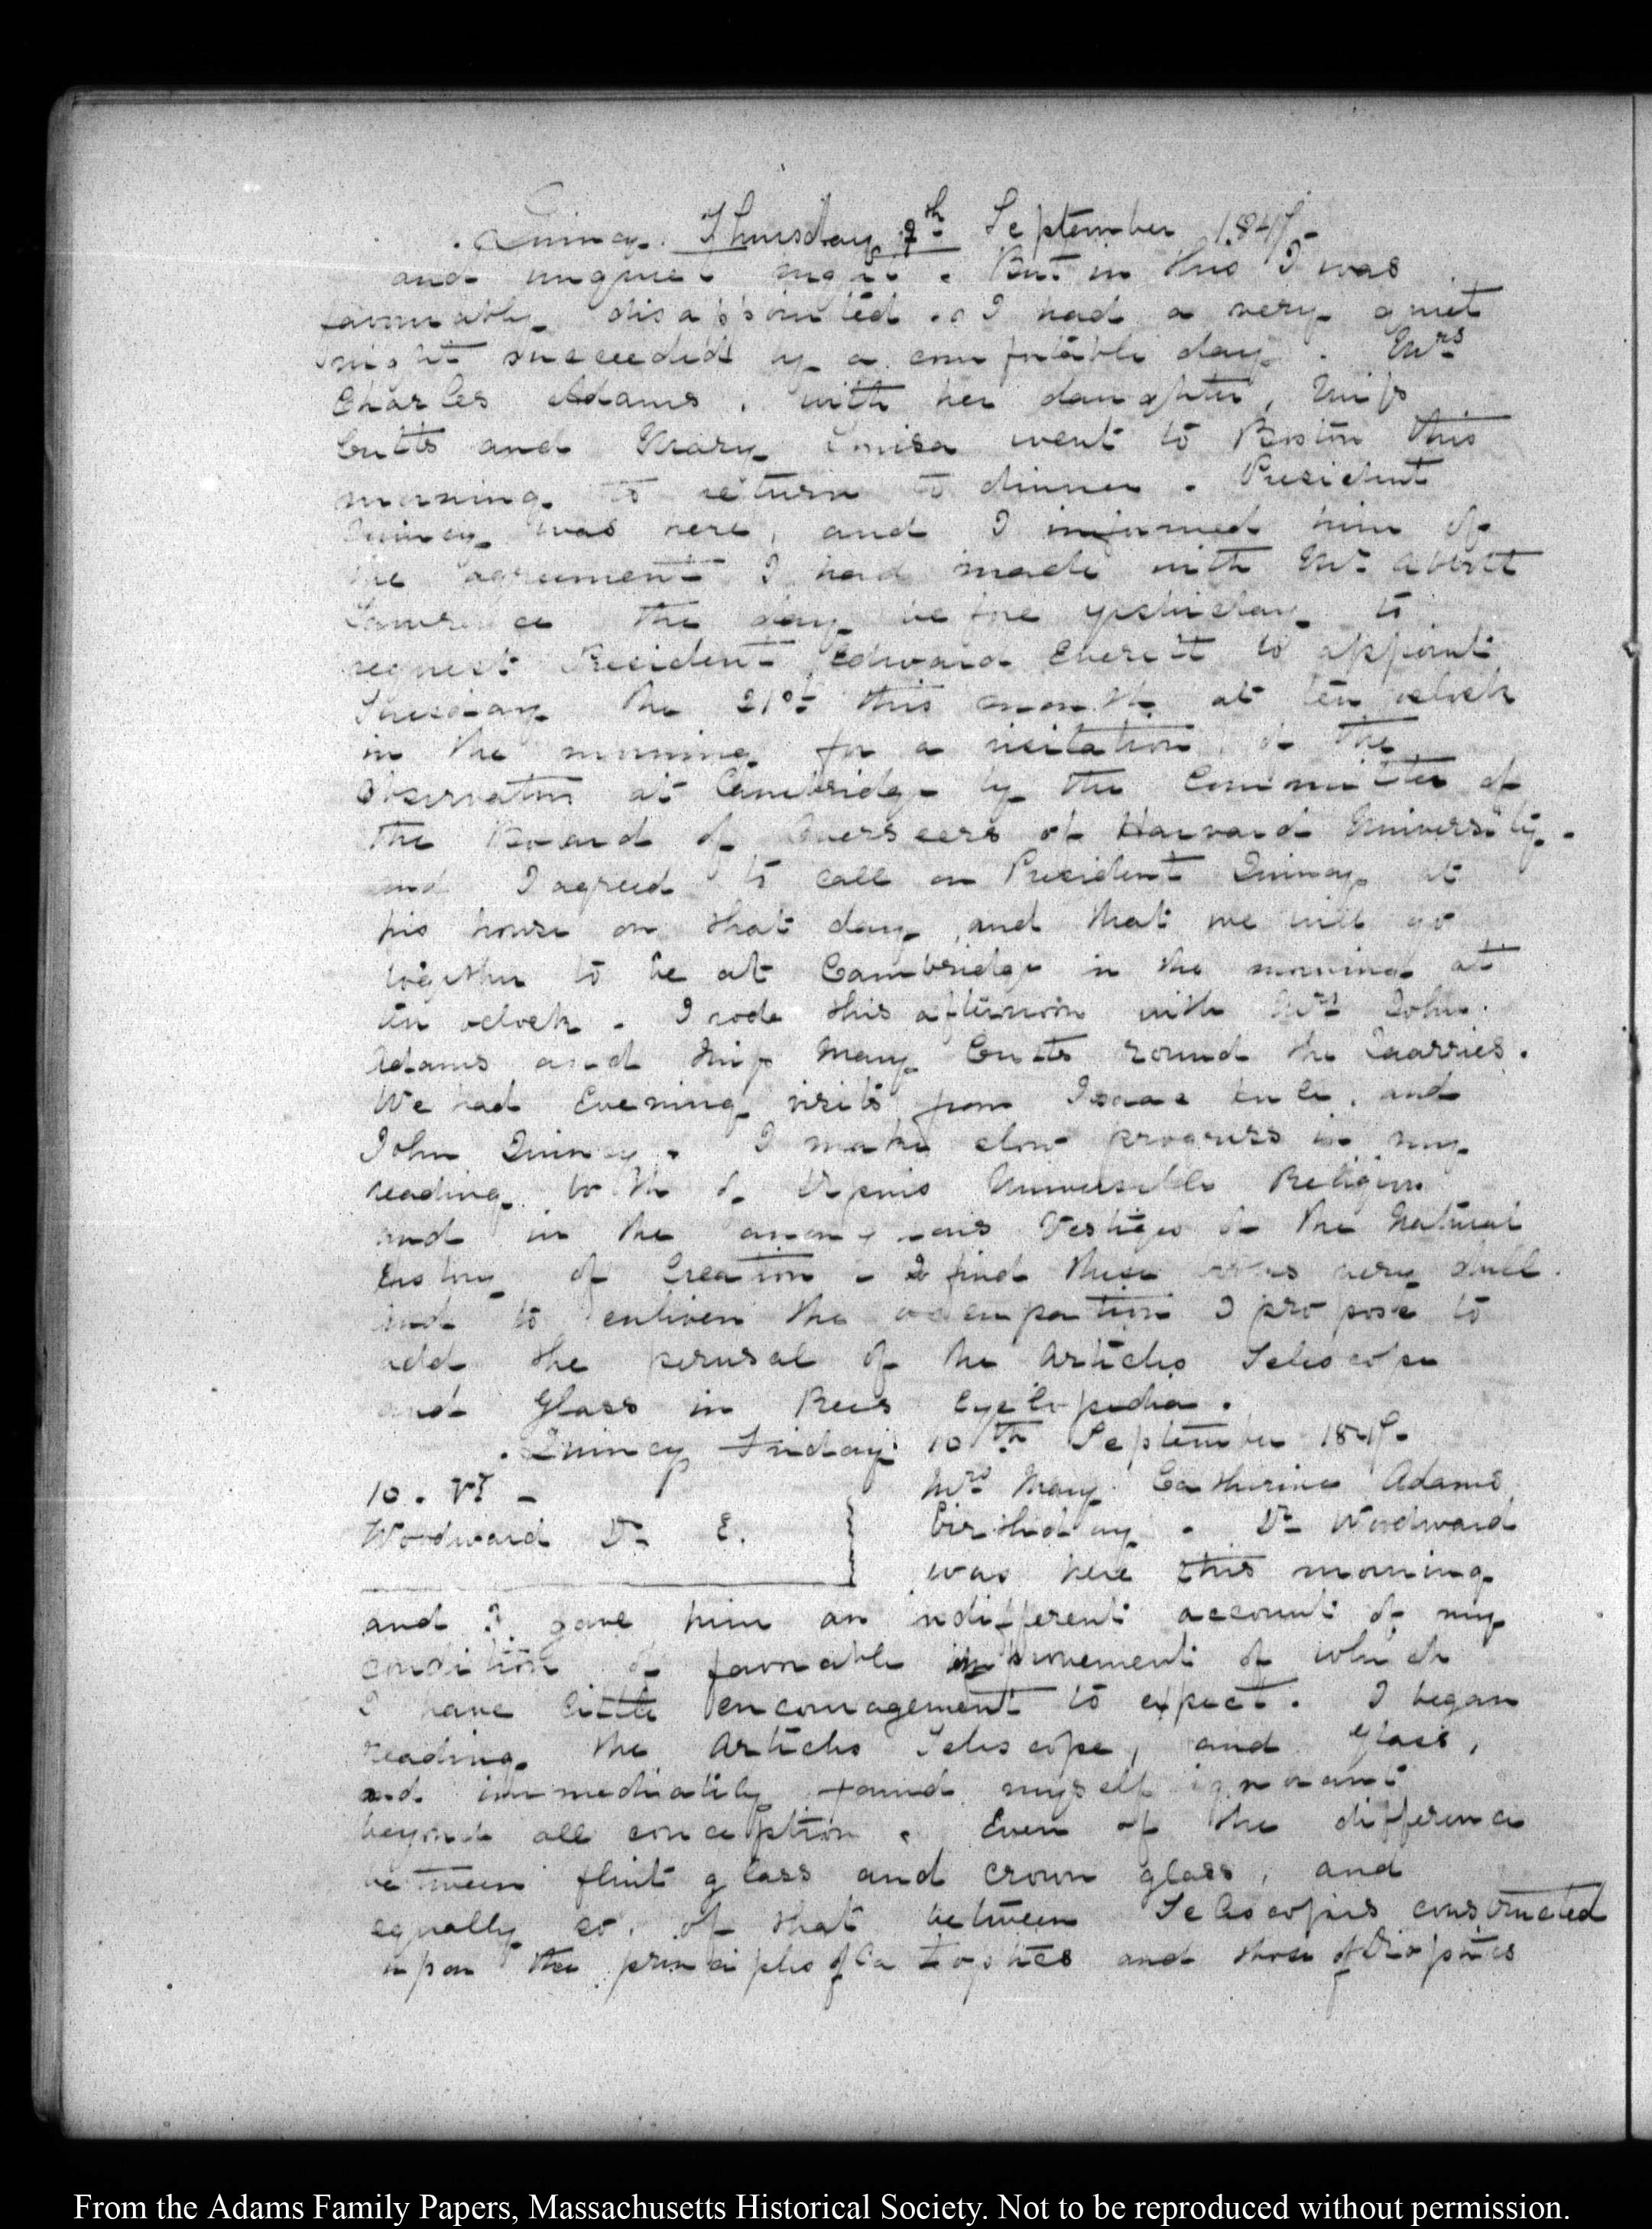 Quincy. Thursday 9th September 1847.
and unquiet night. But in this I was
favourably disappointed. I had a very quiet
night succeeded by a comfortable day. Mrs
Charles Adams, with her daughter, Miss
Cutts and Mary Louisa went to Boston this
morning to return to dinner. President
Quincy was here, and I informed him of
the agreement I had made with Mr Abbott
Lawrence the day before yesterday to
request President Edward Everett to appoint
Tuesday the 21st this month at ten oclock
in the morning for a visitation of the
Observatory at Cambridge by the Committee of
the Board of Overseers of Harvard University.
and I agreed to call on President Quincy at
his house on that day, and that we will go
together to be at Cambridge in the morning at
ten oclock. I rode this afternoon with Mrs John
Adams and Miss Mary Cutts round the Quarries.
We had Evening visits from Isaac and
John Quincy. I make slow progress in my
reading both of Dupuis Universelle Religion
and in the anonymous Vestiges of the Natural
History of Creation. I find these very dull
and to enliven the occupation I propose to
add the perusal of the Articles Telescope
and Glass in Rees Cyclopedia.
Quincy Friday 10th September 1847.
10. VI.
Woodward Dr E.
Mrs Mary Catherine Adams
birthday. Dr Woodward
was here this morning
and I gave him an indifferent account of my
condition of favorable improvement of which
I have little encouragement to expect. I began
reading the Articles Telescope, and Glass,
and immediately found myself ignorant
beyond all conception. Even of the difference
between flint glass and crown glass, and
equally so, of that between Telescopes constructed
upon the principles of Catoptics and those of Dioptics
From the Adams Family Papers, Massachusetts Historical Society. Not to be reproduced without permission.